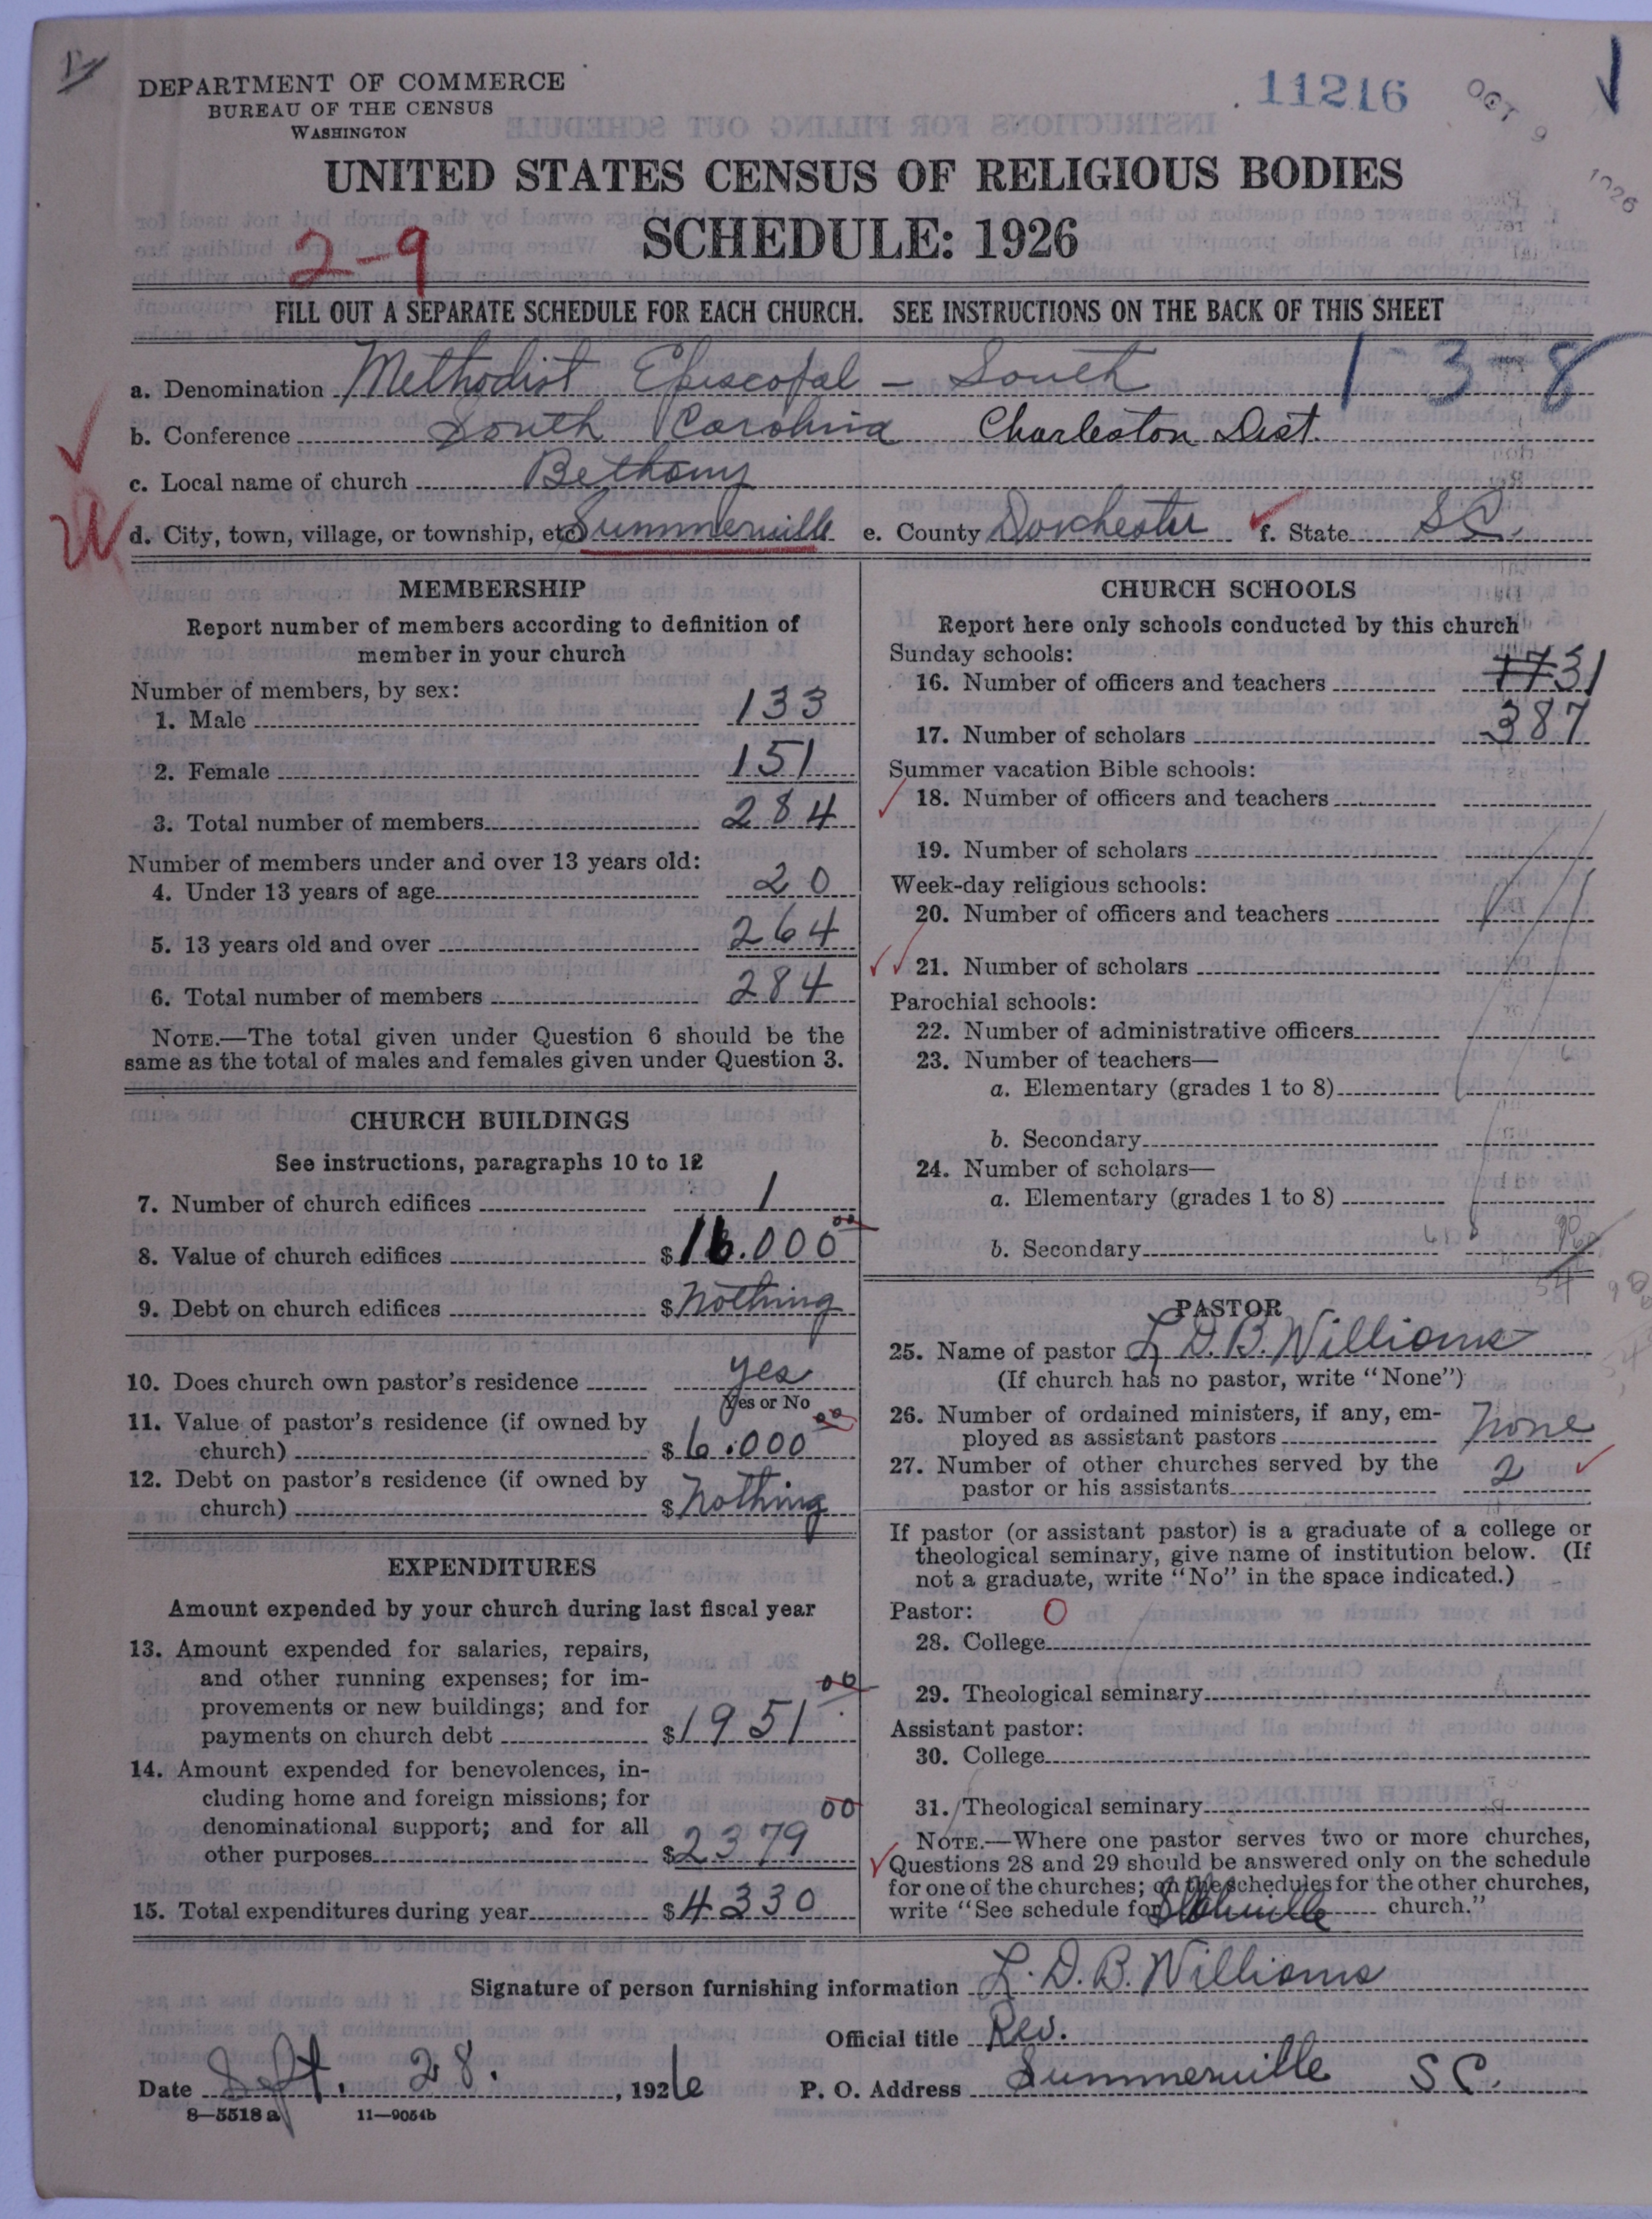 DEPARTMENT OF COMMERCE
BUREAU OF THE CENSUS
WASHINGTON
11216
OCT 9 1926
UNITED STATES CENSUS OF RELIGIOUS BODIES
SCHEDULE: 1926
2-9
FILL OUT A SEPARATE SCHEDULE FOR EACH CHURCH. SEE INSTRUCTIONS ON THE BACK OF THIS SHEET
1-3-8
a. Denomination Methodist Episcopal - South
b. Conference South Carolina Charleston Dist.
c. Local name of church Bethany
d. City, town, village, or township, etc. Summerville e. County Dorchester f. State S.C.
MEMBERSHIP
Report number of members according to definition of
member in your church
Number of members, by sex:
1. Male 133
2. Female 151
3. Total number of members 284
Number of members under and over 13 years old:
4. Under 13 years of age 20
5. 13 years old and over 264
6. Total number of members 284
NOTE.—The total given under Question 6 should be the
same as the total of males and females given under Question 3.
CHURCH BUILDINGS
See instructions, paragraphs 10 to 12
7. Number of church edifices 1
8. Value of church edifices $16.000 00
9. Debt on church edifices $Nothing
10. Does church own pastor's residence yes
Yes or No
11. Value of pastor's residence (if owned by
church) $6.000 00
12. Debt on pastor's residence (if owned by
church) $Nothing
EXPENDITURES
Amount expended by your church during last fiscal year
13. Amount expended for salaries, repairs,
and other running expenses; for im-
provements or new buildings; and for
payments on church debt $1951 00
14. Amount expended for benevolences, in-
cluding home and foreign missions; for
denominational support; and for all
other purposes $2379 00
15. Total expenditures during year $4330
CHURCH SCHOOLS
Report here only schools conducted by this church
Sunday schools:
16. Number of officers and teachers 31
17. Number of scholars 387
Summer vacation Bible schools:
18. Number of officers and teachers
19. Number of scholars
Week-day religious schools:
20. Number of officers and teachers
21. Number of scholars
Parochial schools:
22. Number of administrative officers
23. Number of teachers—
a. Elementary (grades 1 to 8)
b. Secondary
24. Number of scholars—
a. Elementary (grades 1 to 8)
b. Secondary
PASTOR
25. Name of pastor L. D. B. Williams
(If church has no pastor, write "None")
26. Number of ordained ministers, if any, em-
ployed as assistant pastors None
27. Number of other churches served by the
pastor or his assistants 2
If pastor (or assistant pastor) is a graduate of a college or
theological seminary, give name of institution below. (If
not a graduate, write "No" in the space indicated.)
Pastor: O
28. College
29. Theological seminary
Assistant pastor:
30. College
31. Theological seminary
NOTE.—Where one pastor serves two or more churches,
Questions 28 and 29 should be answered only on the schedule
for one of the churches; on the schedules for the other churches,
write "See schedule for church."
Signature of person furnishing information L. D. B. Williams
Official title Rev.
Date Sept. 28., 1926 P. O. Address Summerville S.C.
8—5518 a 11—9054b